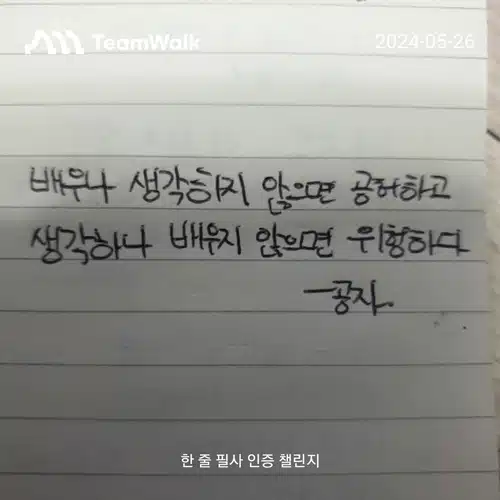 TeamWalk
2024-05-26
배우나 생각하지 않으면 공허하고
생각하나 배우지 않으면 위험하다
-공자.
한 줄 필사 인증 챌린지